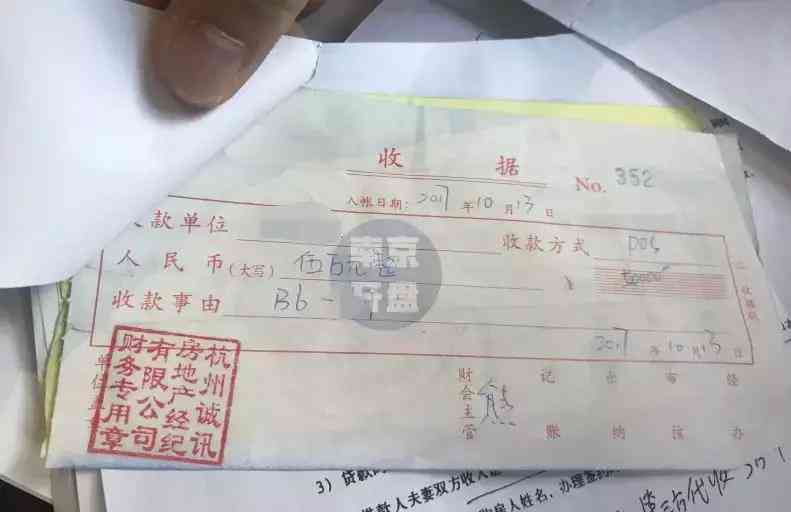 收 据
No. 352
入帐日期: 2017 年 10 月 13 日
款单位
收款方式 POS
人民币(大写) 伍万元整
¥ 50000
收款事由 B6-
2017 年 10 月 13 日
南京
杭州诚讯
房地产经纪
有限公司
财务专用章
财会主管 熊
记账
出纳
审核
经办
3) 贷款
人夫妻双方收入
人姓名、办理
第三方代收